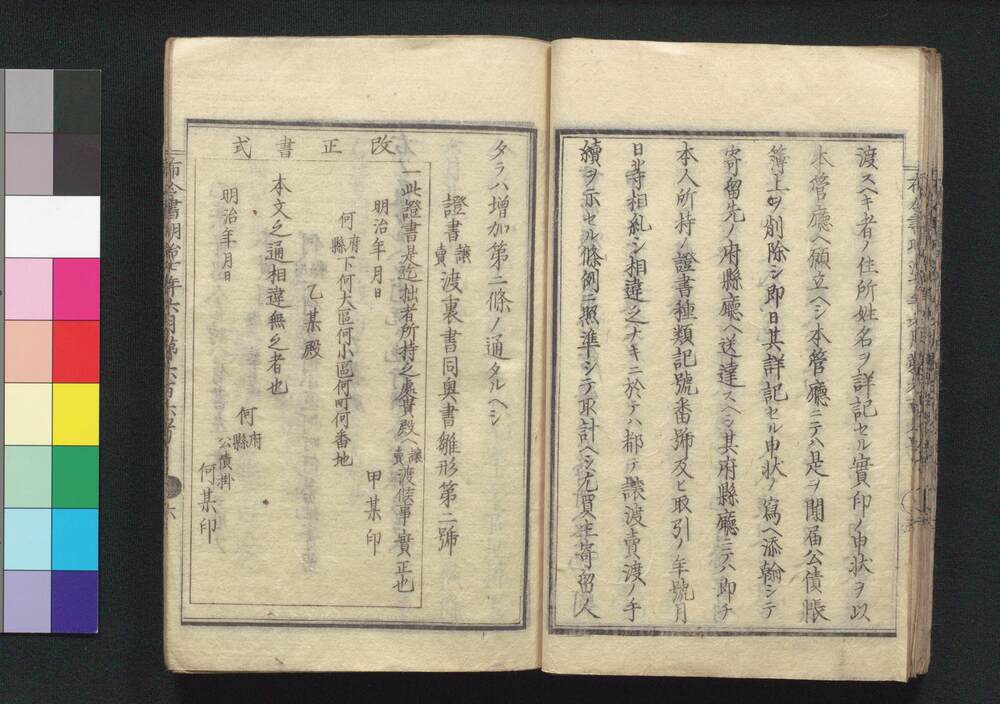 渡スヘキ者ノ住所姓名ヲ詳記セル實印ノ申状ヲ以
本管廳ヘ願立ヘシ本管廳ニテハ是ヲ聞届公債帳
簿上ヨリ削除シ即日其詳記セル申状ノ寫ヘ添翰シテ
寄留先ノ府縣廳ヘ送達スヘシ其府縣廳ニテハ即チ
本人所持ノ證書種類記號番號及ヒ取引ノ年號月
日等相糺シ相違之ナキニ於テハ都テ讓渡賣渡ノ手
續ヲ示セル條例ニ照準シテ取計ヘシ尤買主寄留人
タラハ増加第二條ノ通タルヘシ
證書讓賣渡裏書同奥書雛形第二號
改正書式
一此證書是迄拙者所持之處貴殿ヘ讓賣渡候事實正也
明治年月日
甲某印
何府縣下何大區何小區何町何番地
乙某殿
本文之通相違無之者也
明治年月日
何府縣
公債掛
何某印
布令書明治七年六月第六百六号
六